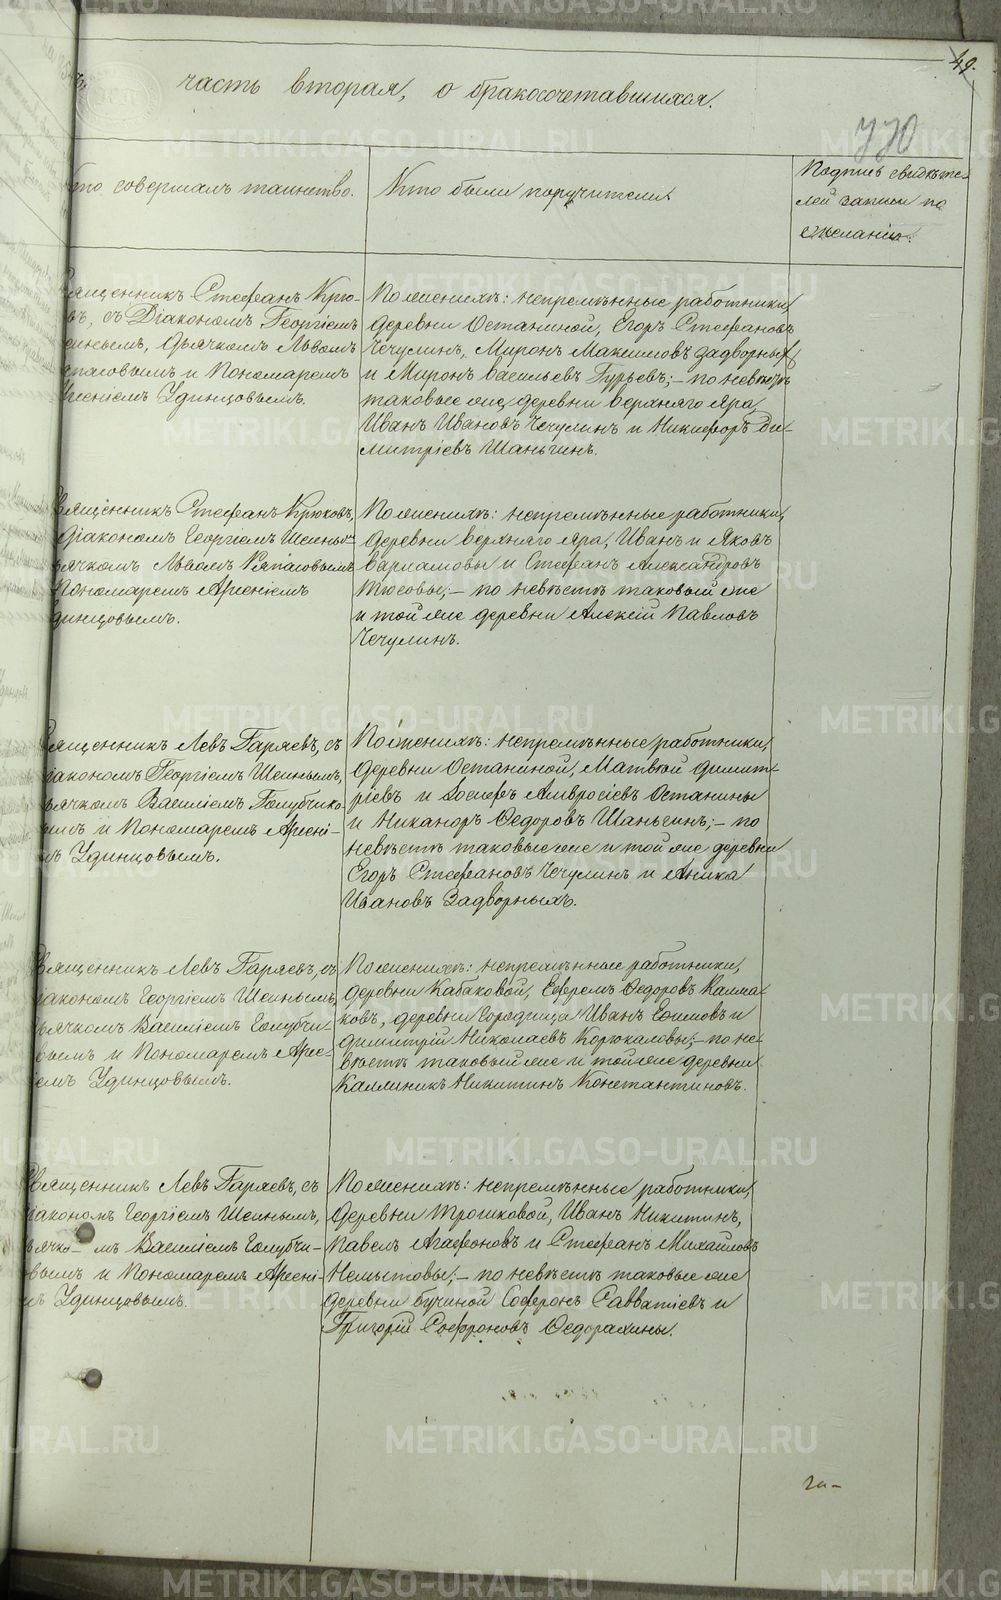 49.
часть вторая, о бракосочетавшихся.
770
то совершалъ таинство.
Кто были поручители.
Подпись свидѣте-
лей записи по
желанію.
ященникъ Стефанъ Крю-
въ, съ Діакономъ Георгіемъ
Шеинымъ, дьячкомъ Львомъ
паговымъ и Пономаремъ
Арсеніемъ Удинцовымъ.
По женихѣ: непремѣнные работники,
деревни Останиной, Егоръ Стефановъ
Чечулинъ, Миронъ Максимовъ Задворныхъ
и Миронъ Васильевъ Гурьевъ; – по невѣстѣ
таковые же, деревни Верхняго Яра,
Иванъ Ивановъ Чечулинъ и Никифоръ Ди-
митріевъ Шаньгинъ.
вященникъ Стефанъ Крюковъ,
діакономъ Георгіемъ Шеинымъ
ячкомъ Львомъ
Пономаремъ Арсеніемъ
динцовымъ.
По женихѣ: непремѣнные работники,
деревни Верхняго Яра, Иванъ и Яковъ
Варламовы и Стефанъ Александровъ
Тюсовы; – по невѣстѣ таковый же
и той же деревни Алексій Павловъ
Чечулинъ.
вященникъ Левъ Гаряевъ, съ
іакономъ Георгіемъ Шеинымъ,
ячкомъ Василіемъ Голубчико-
вымъ и Пономаремъ Арсені-
мъ Удинцовымъ.
По женихѣ: непремѣнные работники,
деревни Останиной, Матвѣй Димит-
ріевъ и Іосифъ Амвросіевъ Останины
и Никаноръ Ѳедоровъ Шаньгинъ; – по
невѣстѣ таковые же и той же деревни
Егоръ Стефановъ Чечулинъ и Аника
Ивановъ Задворныхъ.
вященникъ Левъ Гаряевъ, съ
іакономъ Георгіемъ Шеинымъ,
ьячкомъ Василіемъ Голубчи-
вымъ и Пономаремъ Арсе-
іемъ Удинцовымъ.
По женихѣ: непремѣнные работники,
деревни Кабаковой, Ефремъ Ѳедоровъ Калма-
ковъ, деревни Городища Иванъ Ефимовъ и
Димитрій Николаевъ Корюкаловы; – по не-
вѣстѣ таковый же и той же деревни
Каллиникъ Никитинъ Константиновъ.
вященникъ Левъ Гаряевъ, съ
іакономъ Георгіемъ Шеинымъ,
ьячко- мъ Василіемъ Голубчи-
вымъ и Пономаремъ Арсені-
мъ Удинцовымъ.
По женихѣ: непремѣнные работники,
деревни Трошковой, Иванъ Никитинъ,
Павелъ Агафоновъ и Стефанъ Михайловъ
Немытовы; – по невѣстѣ таковые же
деревни Бучиной Софронъ Савватіевъ и
Григорій Софроновъ Ѳедорахины.
METRIKI.GASO-URAL.RU